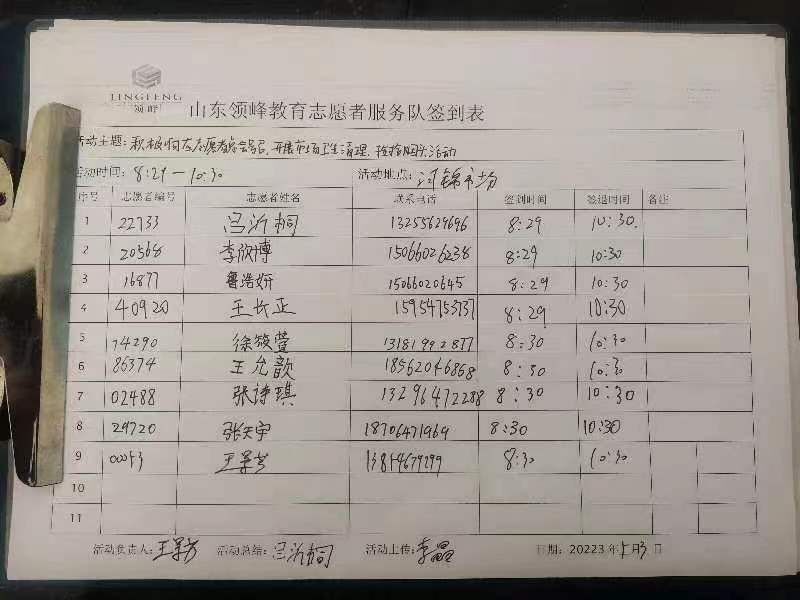 LINGFENG
领峰
山东领峰教育志愿者服务队签到表
活动主题: 积极响应志愿者协会号召,开展市场卫生清理、捡拾烟头活动
活动时间: 8:29—10:30 活动地点: 河锦市场
序号 志愿者编号 志愿者姓名 联系电话 签到时间 签退时间 备注
1 22733 吕沂桐 13255629696 8:29 10:30.
2 20568 李欣博 15066026238 8:29 10:30
3 16877 鲁浩妍 15066020645 8:29 10:30
4 40920 王长正 15954753737 8:29 10:30
5 74290 徐筱萱 13181992877 8:30 10:30
6 86374 王允歆 18562046868 8:30 10:30
7 02488 张诗琪 13296472288 8:30 10:30
8 29720 张天宇 18706471969 8:30 10:30
9 王 8:30 10:30
10
11
活动负责人: 王 活动总结: 吕沂桐 活动上传: 李晶 日期: 20223 年 5月3 日